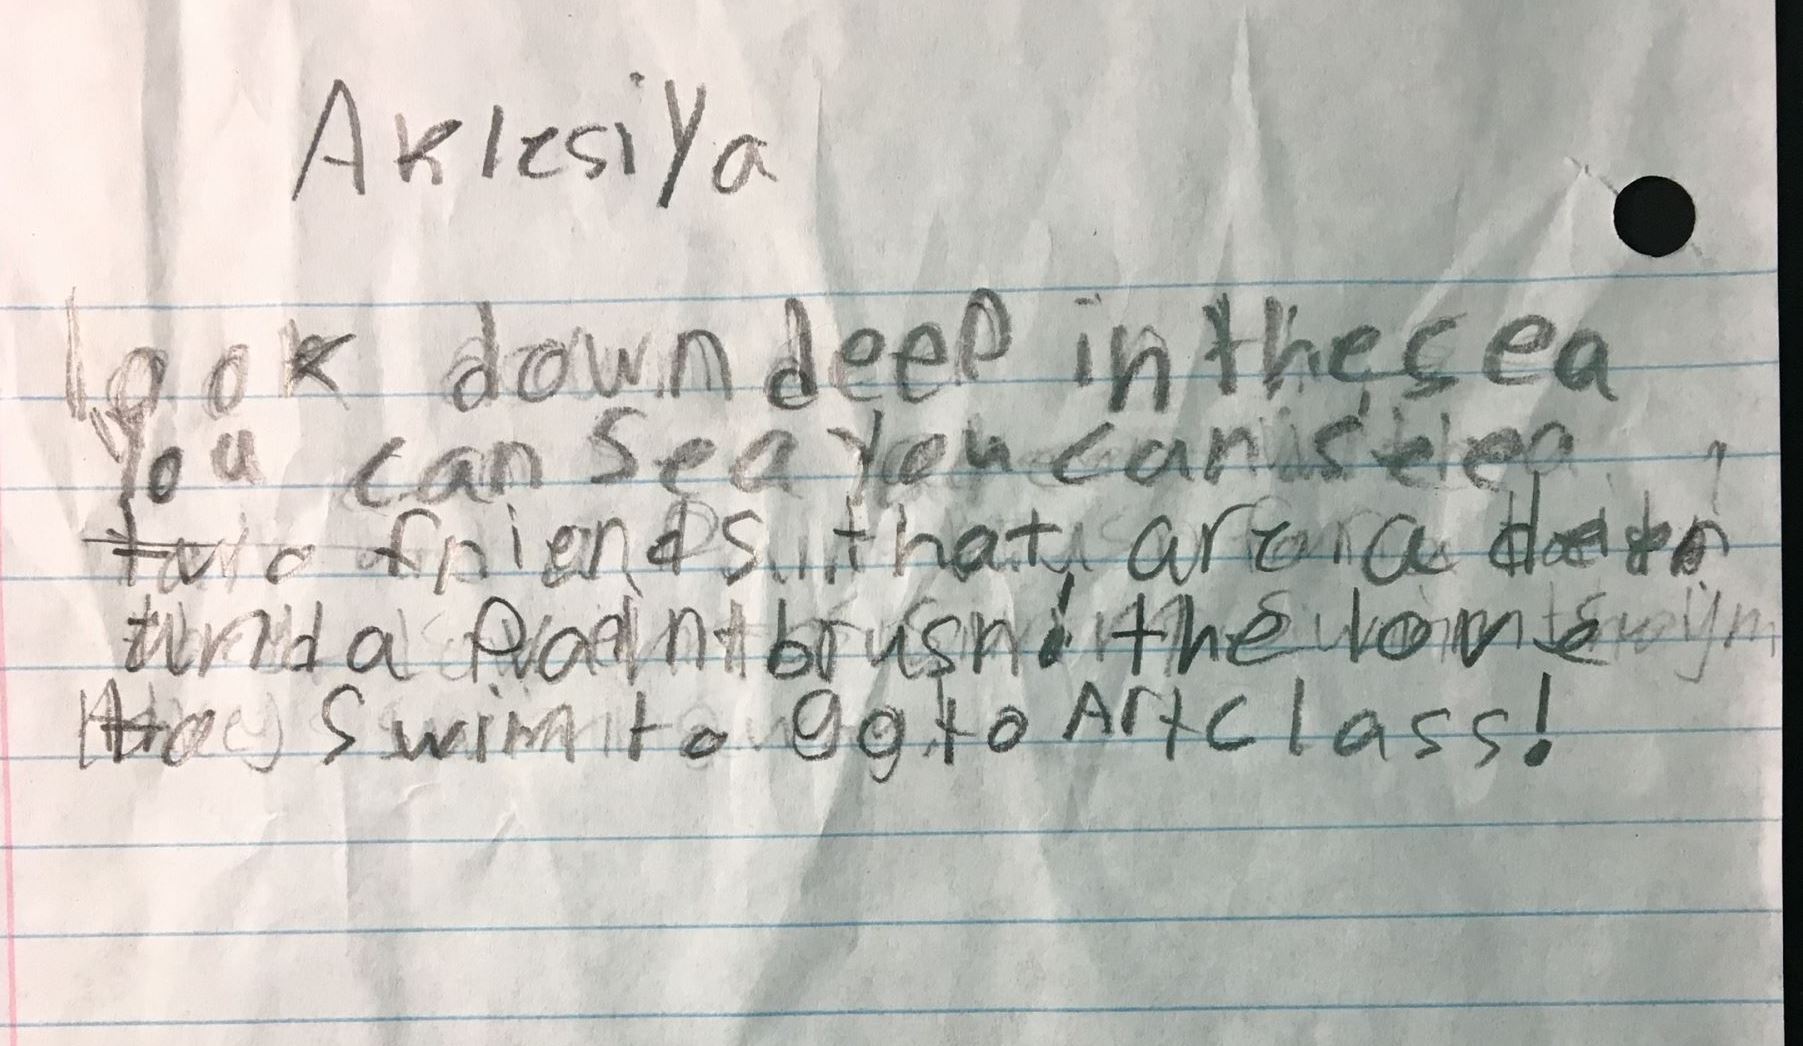 Aklesiya
look down deep in the sea
You can Sea You can see
two friends that are a
and a Paint brush! the love
to Swim to go to Art Class!